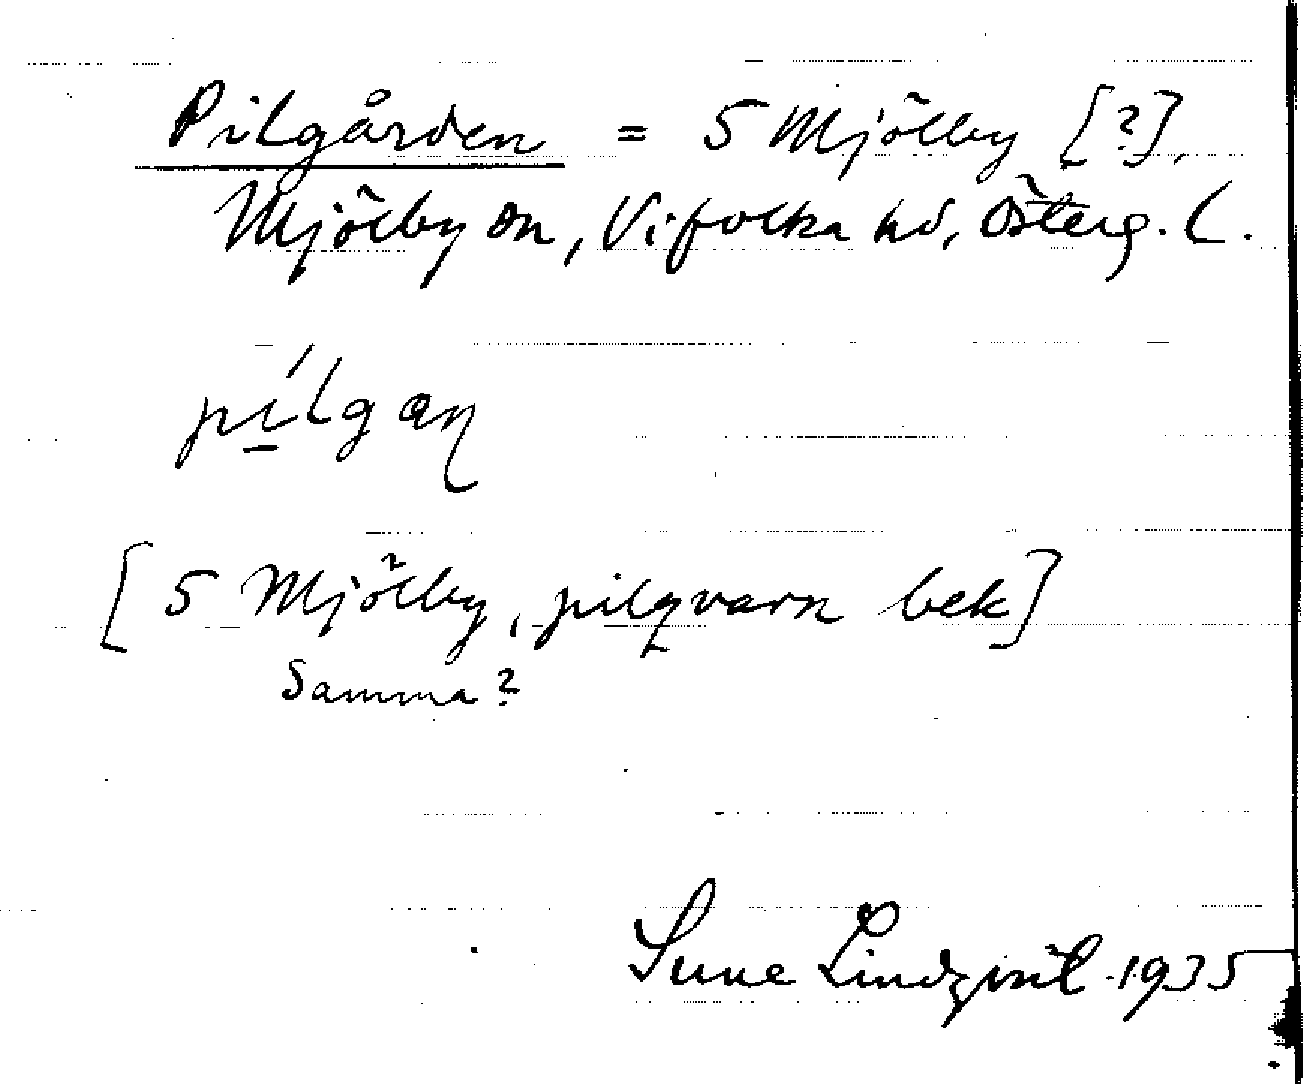 Pilgården = 5 Mjölby [?],
Mjölby sn, Vifolka hd, Österg. l.
[5 Mjölby, pilqvarn bek]
Samma?
Sune Lindqvist 1935